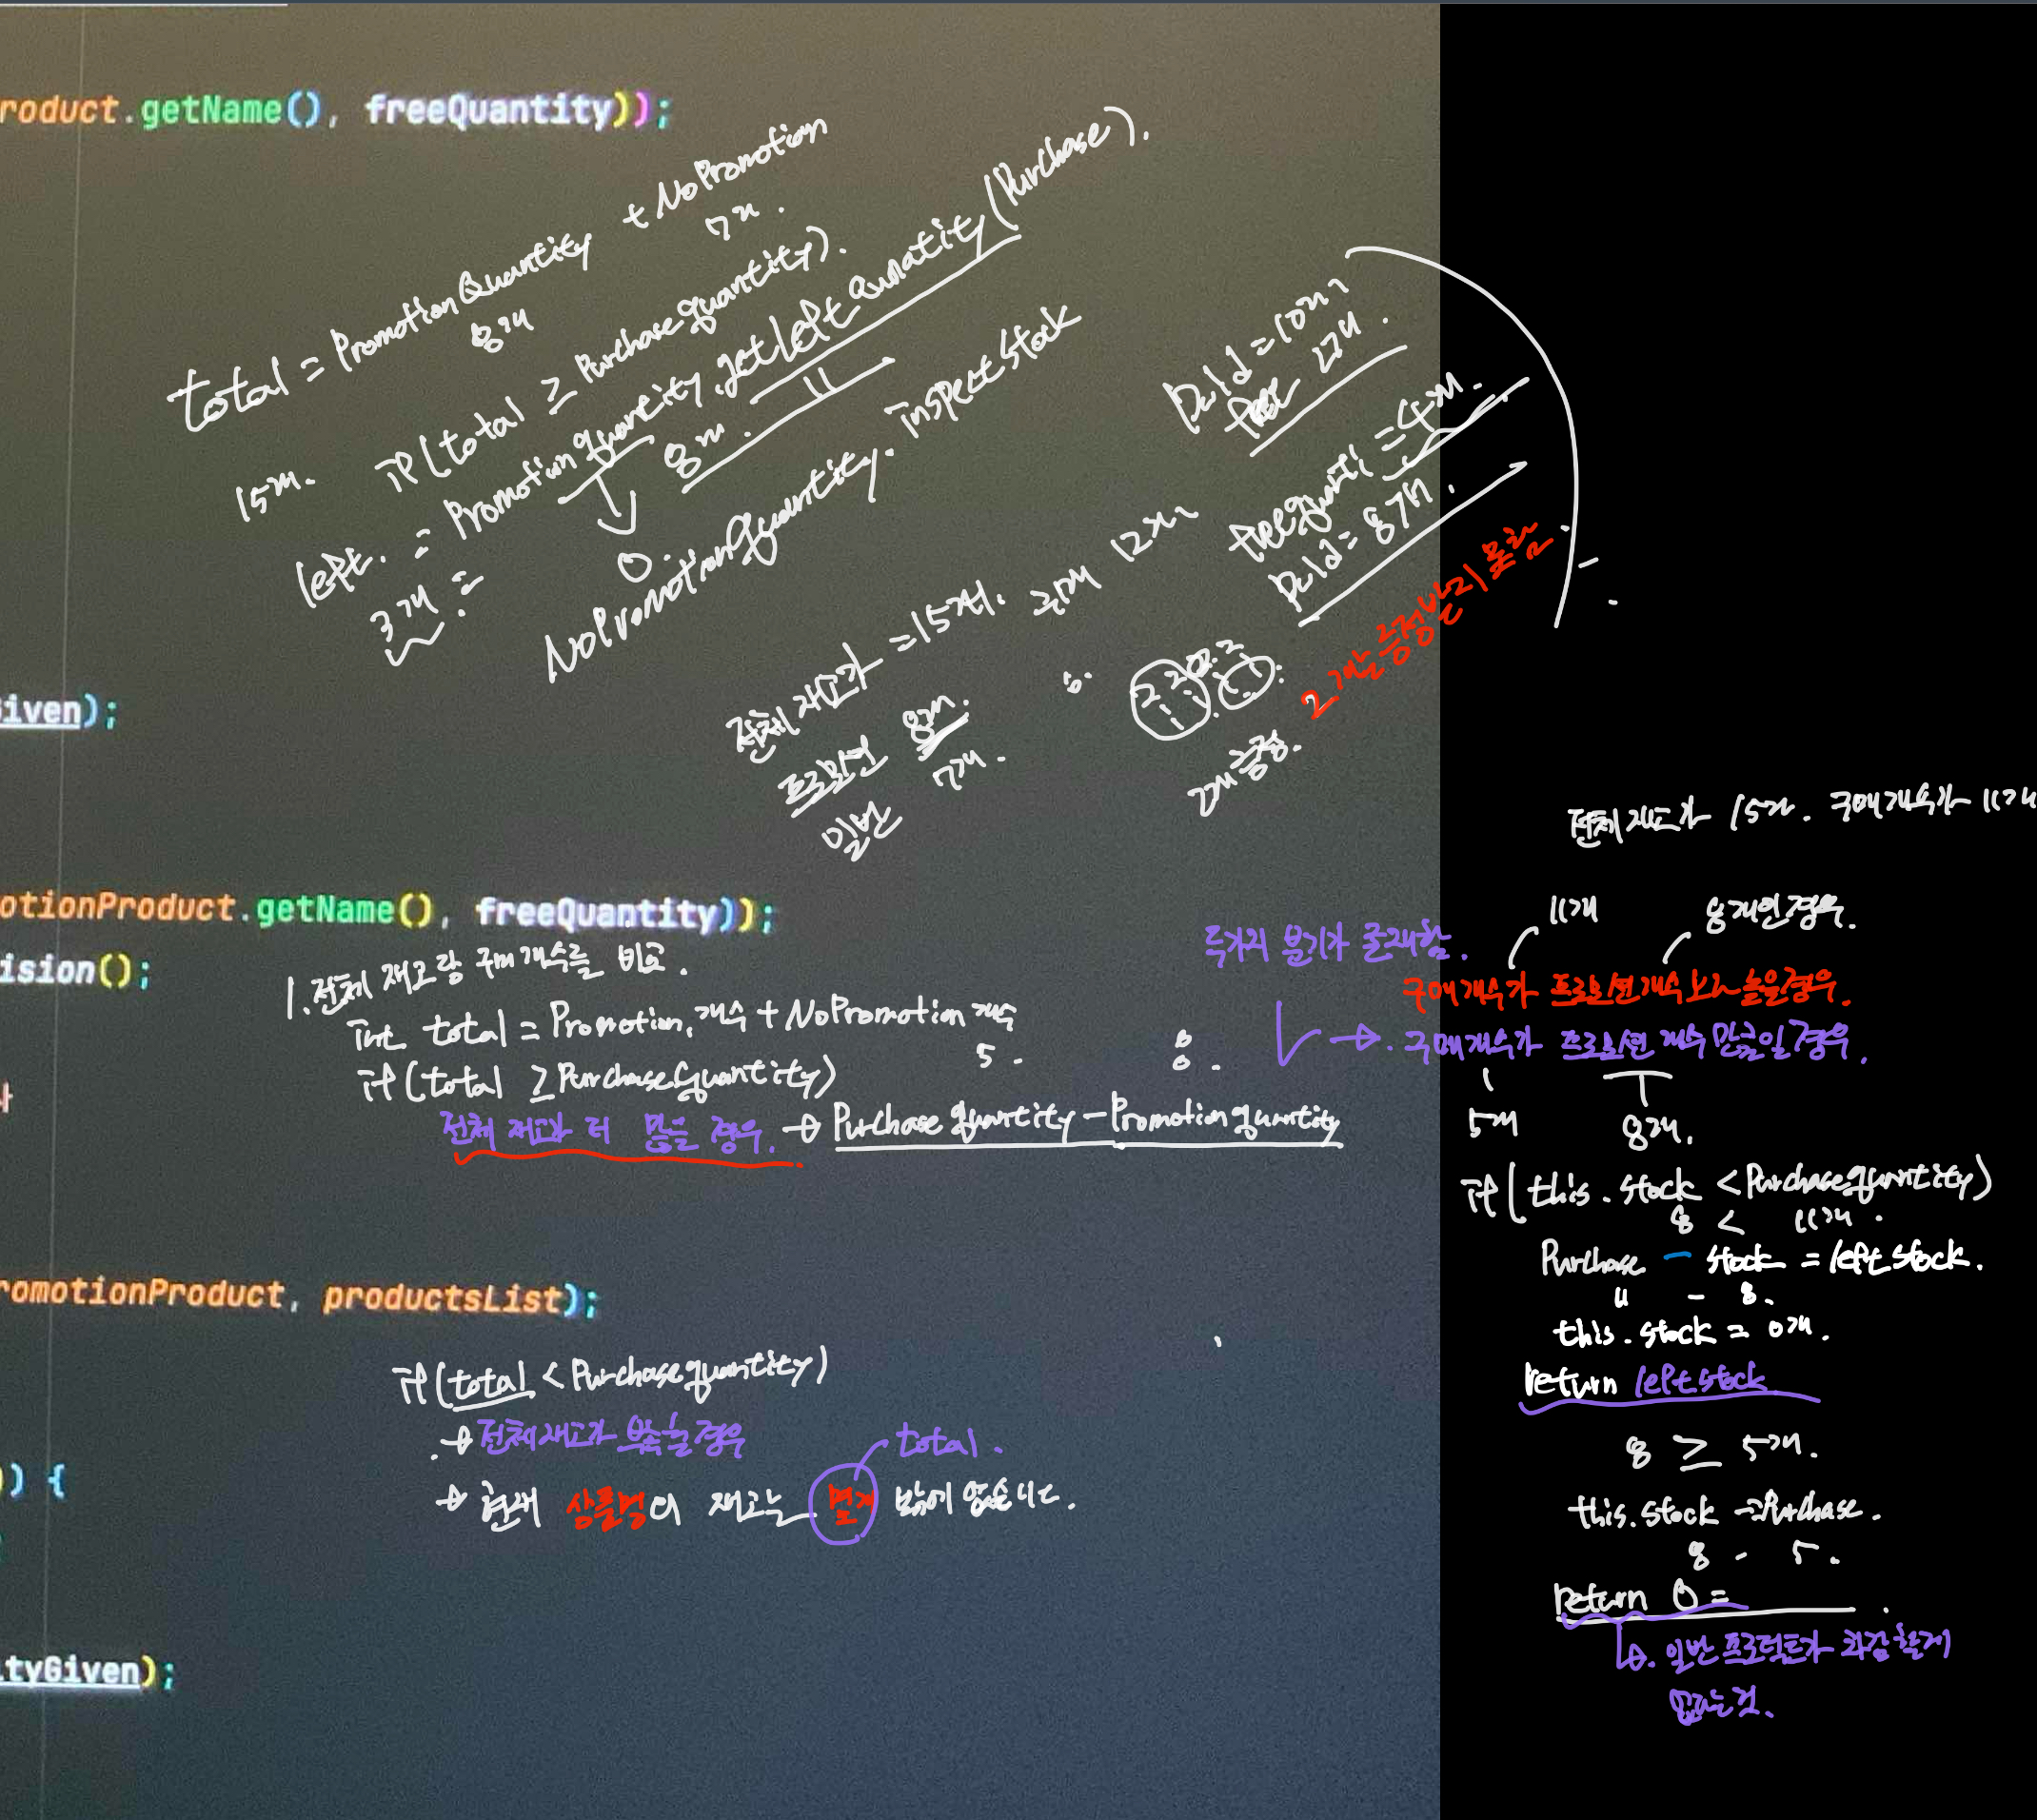 roduct.getName(), freeQuantity));
total = PromotionQuantity + NoPromotion
8개 7개.
15개. if(total ≥ Purchasequantity).
left. = Promotionquantity.getleft Qunatity(Purchase).
3개 = 8개. 11
0.
NoPromotionquantity. inspect Stock
Paid = 10개
free 2개.
freequanti = 4개.
Paid = 8개.
전체 재고가 = 15개. 구매 12개
프로모션 8개.
일반 7개.
2개만 증정받은
iven);
전체 재고가 15개. 구매개수가 11개
11개 8개인경우.
otionProduct.getName(), freeQuantity));
두가지 분기가 존재함.
ision();
1.전체 재고랑 구매개수를 비교.
구매개수가 프로모션개수보다 높을경우.
int total = Promotion.개수 + NoPromotion 개수
5. 8.
구매개수가 프로모션 개수 만큼일경우.
if(total ≥ Purchasequantity)
전체 재고가 더 많을 경우. → Purchase quantity - Promotionquantity
5개 8개.
if(this.stock < Purchasequantity)
8 < 11개.
Purchase - stock = left stock.
11 - 8.
romotionProduct, productsList);
this.stock = 0개.
if(total < Purchasequantity)
return leftstock
→ 전체재고가 부족할경우
total.
8 ≥ 5개.
) {
→ 현재 상품명의 재고는 몇개 밖에 없습니다.
this.stock - Purchase.
8 - 5.
return 0 =
일반 프로덕트가 차감할게
없다는것.
tyGiven);